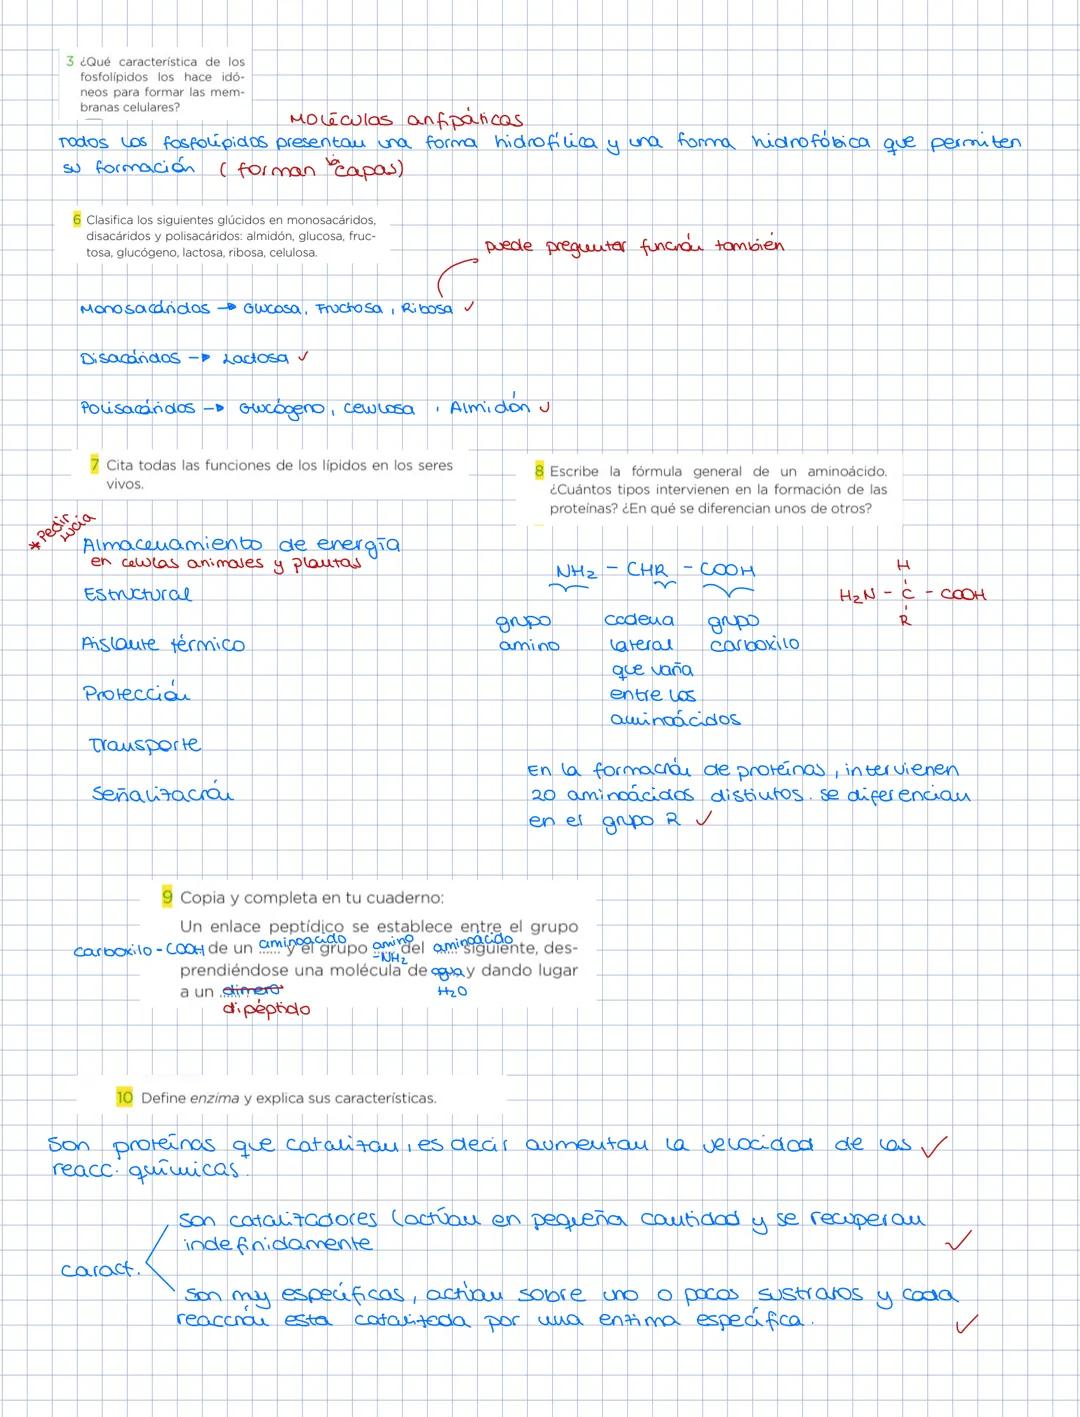 3 ¿Qué característica de los
fosfolípidos los hace idó-
neos para formar las mem-
branas celulares?
Moléculas anfipáticas
Todos los fosfolípidos presentan una forma hidrofílica y una forma hidrofóbica que permiten
su formación (forman bicapas)
6 Clasifica los siguientes glúcidos en monosacáridos,
disacáridos y polisacáridos: almidón, glucosa, fruc-
tosa, glucógeno, lactosa, ribosa, celulosa.
puede preguntar función también
Monosacáridos → Glucosa, Fructosa, Ribosa ✓
Disacáridos → Lactosa ✓
Polisacáridos → Glucógeno, celulosa, Almidón ✓
7 Cita todas las funciones de los lípidos en los seres
vivos.
* Pedir Lucía
Almacenamiento de energía
en células animales y plantas
Estructural
Aislante térmico
Protección
Transporte
Señalización
8 Escribe la fórmula general de un aminoácido.
¿Cuántos tipos intervienen en la formación de las
proteínas? ¿En qué se diferencian unos de otros?
NH2 - CHR - COOH
grupo amino
cadena lateral que varía entre los aminoácidos
grupo carboxilo
H
H2N - C - COOH
R
En la formación de proteínas, intervienen
20 aminoácidos distintos. se diferencian
en el grupo R ✓
9 Copia y completa en tu cuaderno:
Un enlace peptídico se establece entre el grupo
carboxilo - COOH de un aminoacido y el grupo amino -NH2 del aminoacido siguiente, des-
prendiéndose una molécula de agua H2O y dando lugar
a un dimero
dipéptido
10 Define enzima y explica sus características.
Son proteínas que catalizan, es decir aumentan la velocidad de las ✓
reacc. químicas.
caract.
Son catalizadores (actúan en pequeña cantidad y se recuperan
indefinidamente ✓
Son muy específicas, actúan sobre uno o pocos sustratos y cada
reacción esta catalizada por una enzima específica. ✓